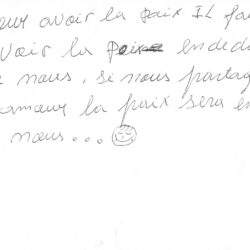 avoir la paix IL fau
avoir la endeda
nous, si nous partag
amour la paix sera en
nous...